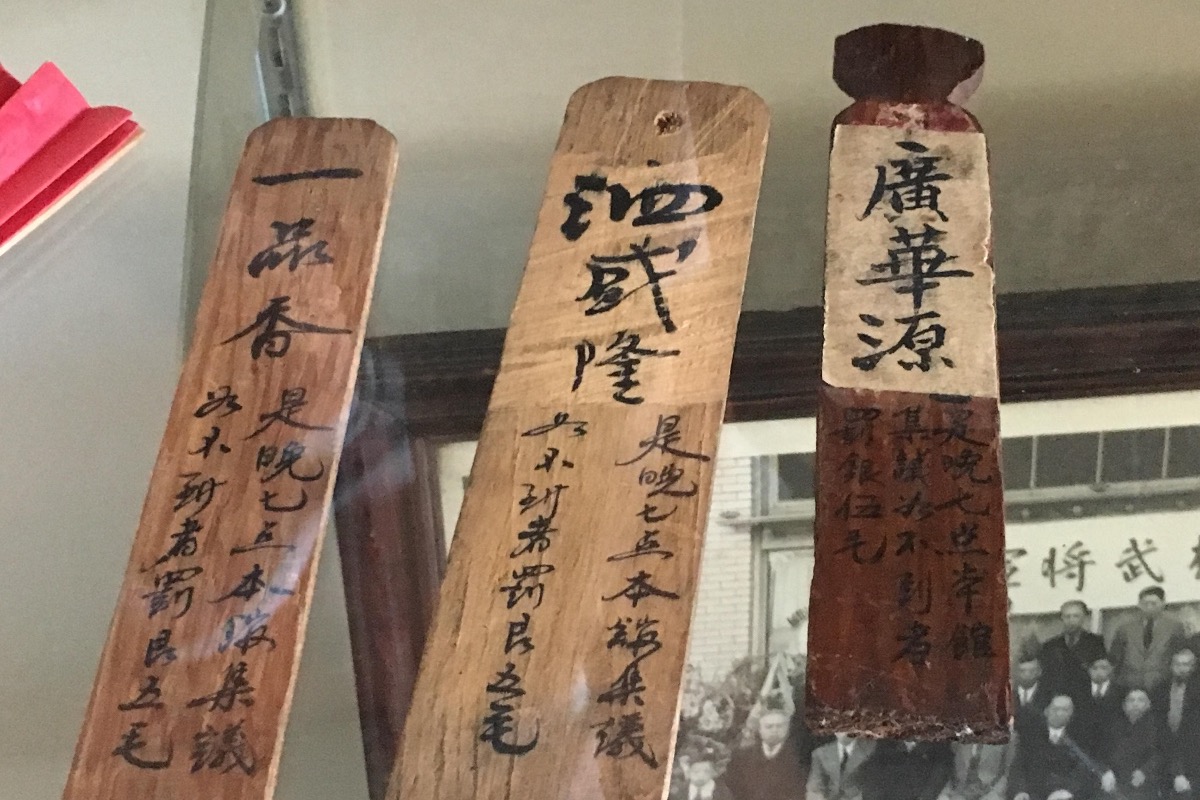 一品香
是晚七点本館集議
如不到者罰艮五毛
泗盛隆
是晚七点本館集議
如不到者罰艮五毛
廣華源
是晚七点本館
集議如不到者
罰銀伍毛
武將